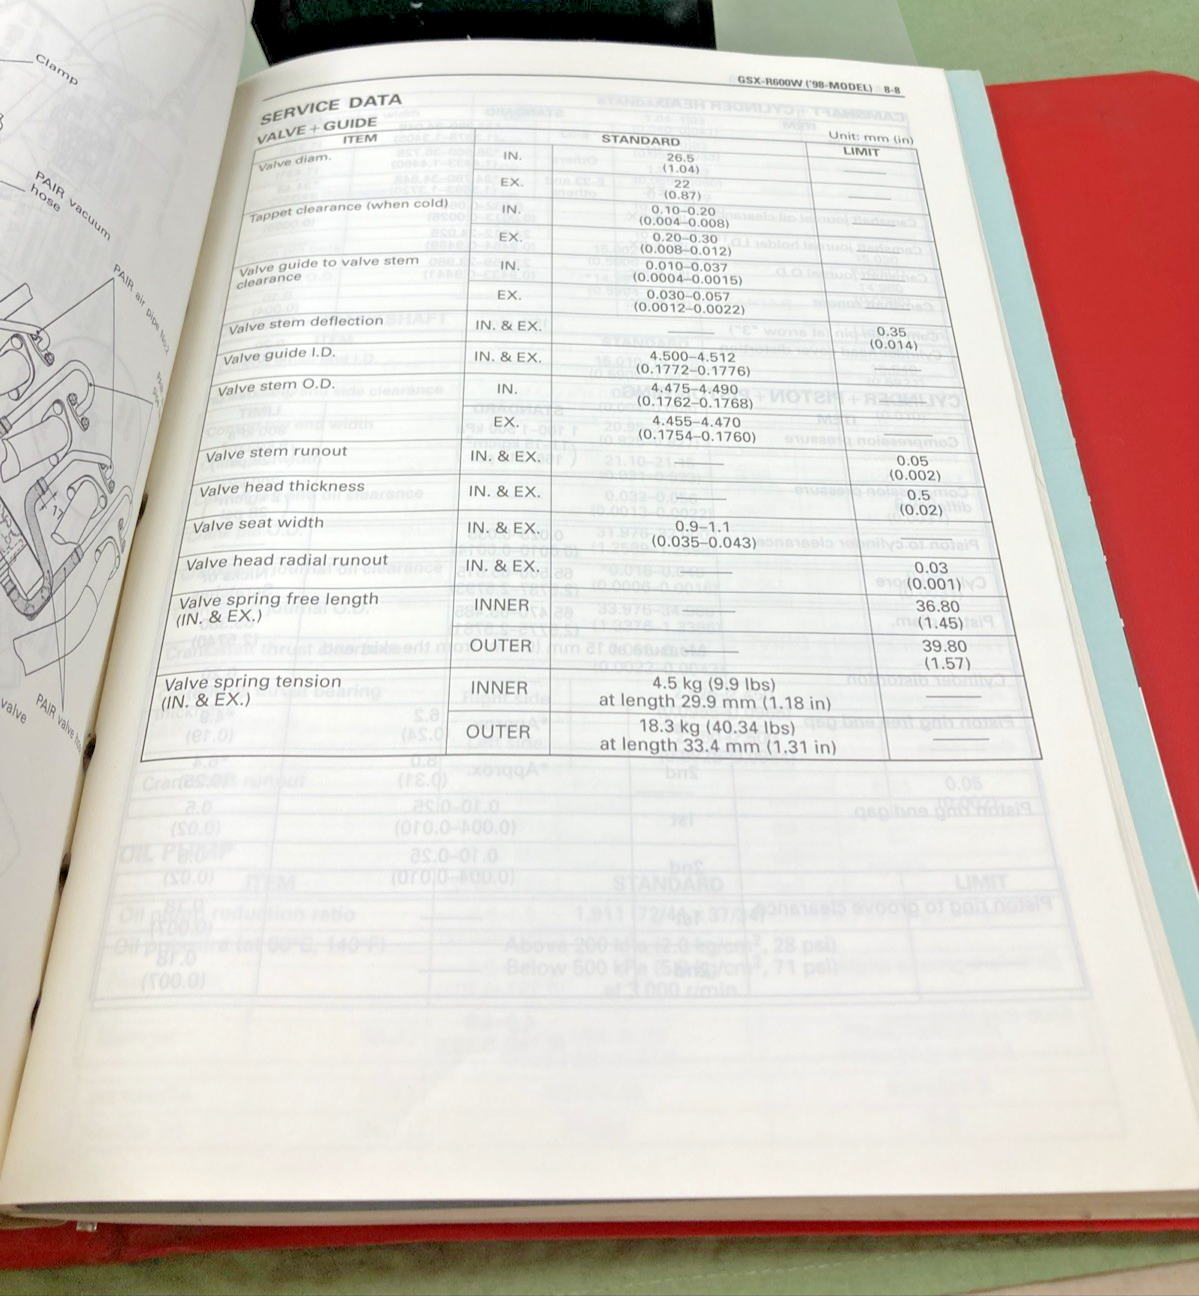 Clamp
PAIR vacuum
hose
PAIR air pipe No.2
PAIR valve No.
valve
17
GSX-R600W ('98-MODEL) 8-8
SERVICE DATA
VALVE + GUIDE
Unit: mm (in)
ITEM STANDARD LIMIT
Valve diam. IN. 26.5
(1.04)
EX. 22
(0.87)
Tappet clearance (when cold) IN. 0.10–0.20
(0.004–0.008)
EX. 0.20–0.30
(0.008–0.012)
Valve guide to valve stem
clearance IN. 0.010–0.037
(0.0004–0.0015)
EX. 0.030–0.057
(0.0012–0.0022)
Valve stem deflection IN. & EX. 0.35
(0.014)
Valve guide I.D. IN. & EX. 4.500–4.512
(0.1772–0.1776)
Valve stem O.D. IN. 4.475–4.490
(0.1762–0.1768)
EX. 4.455–4.470
(0.1754–0.1760)
Valve stem runout IN. & EX. 0.05
(0.002)
Valve head thickness IN. & EX. 0.5
(0.02)
Valve seat width IN. & EX. 0.9–1.1
(0.035–0.043)
Valve head radial runout IN. & EX. 0.03
(0.001)
Valve spring free length
(IN. & EX.) INNER 36.80
(1.45)
OUTER 39.80
(1.57)
Valve spring tension
(IN. & EX.) INNER 4.5 kg (9.9 lbs)
at length 29.9 mm (1.18 in)
OUTER 18.3 kg (40.34 lbs)
at length 33.4 mm (1.31 in)